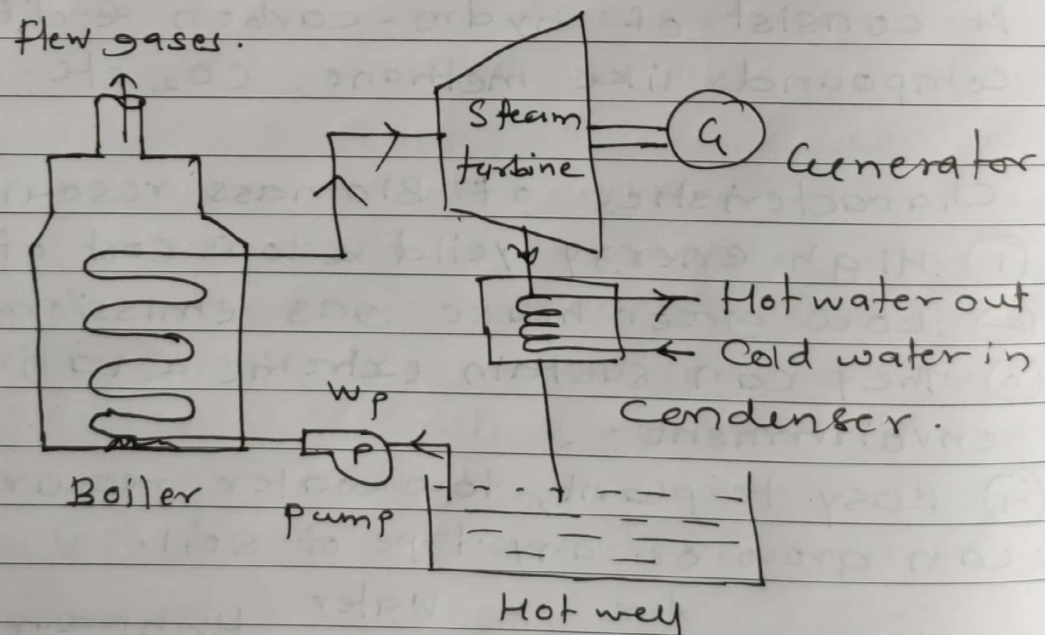 Flew gases.
Steam
turbine
G
Generator
Hot water out
Cold water in
Condenser.
Wp
P
Boiler
pump
Hot well